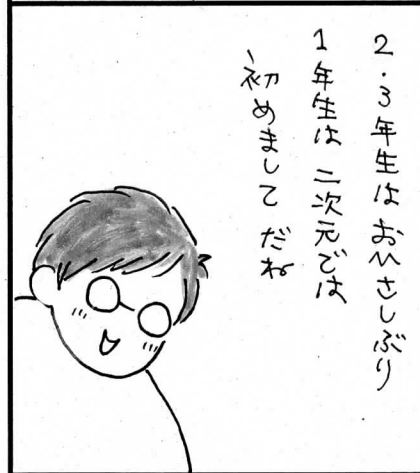 2・3年生は おひさしぶり
1年生は 二次元では
初めまして だね